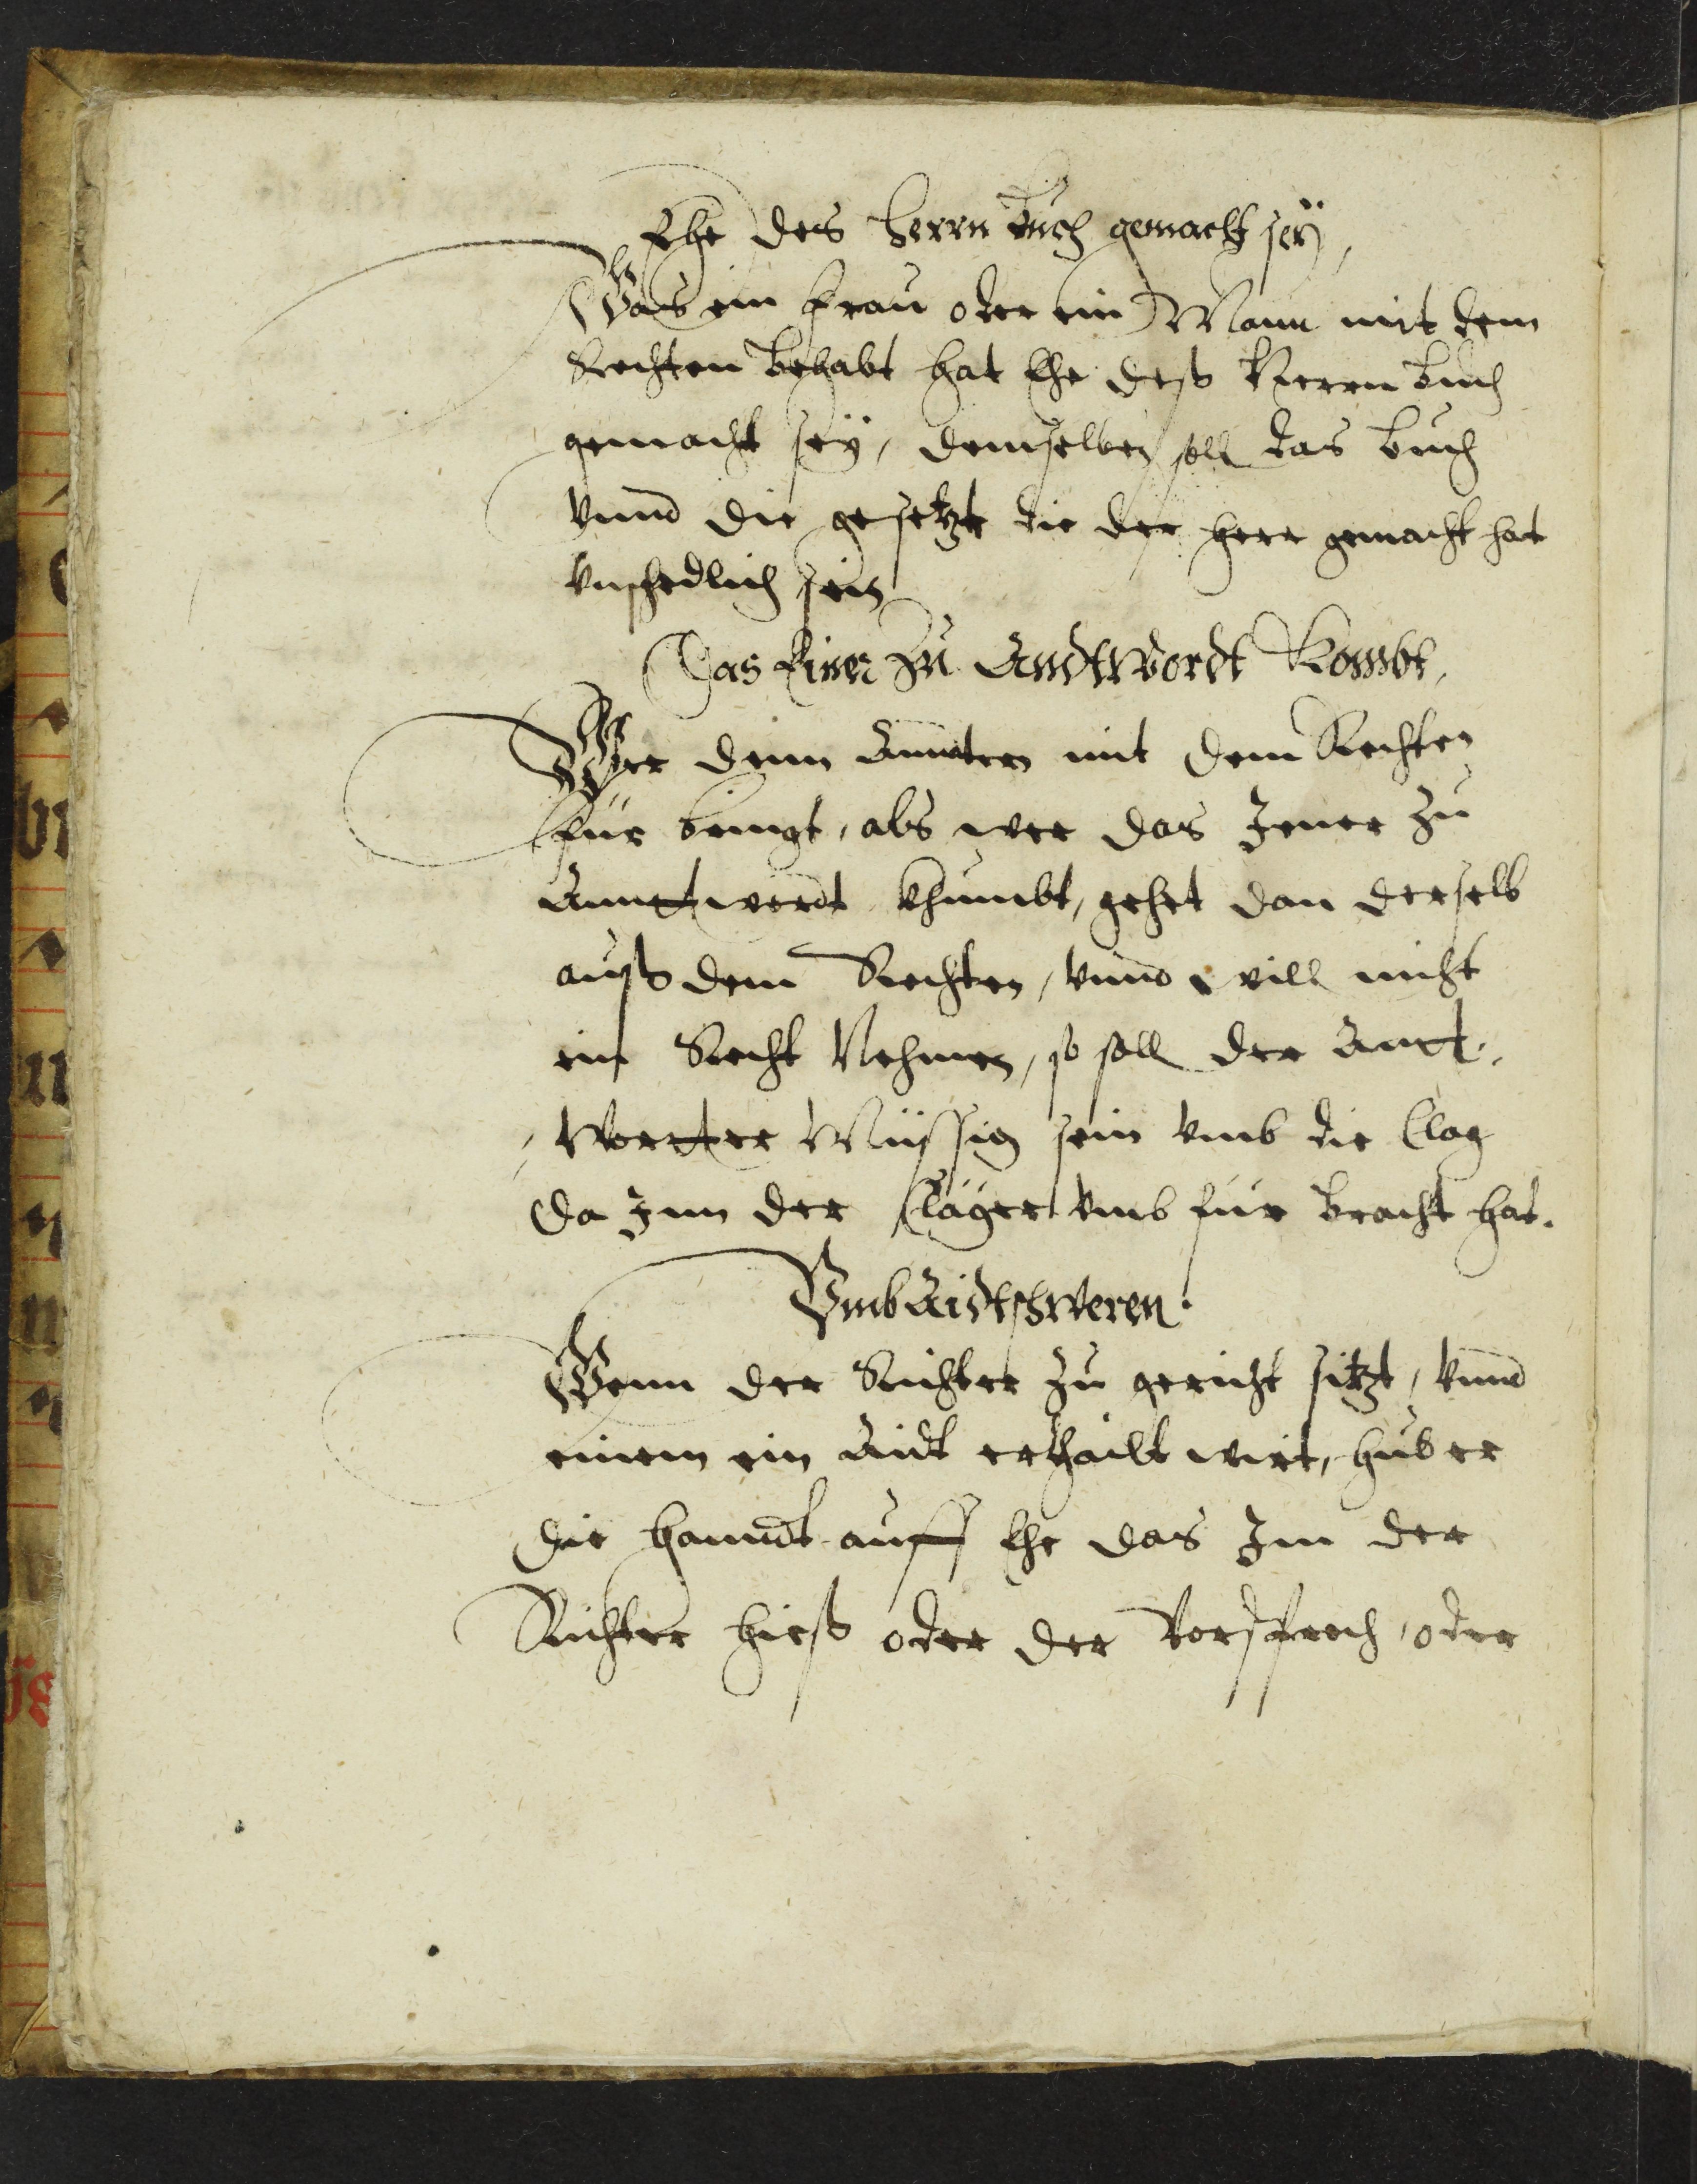 Ehe des herrn buch gemacht seÿ,
Was ein frau oder ein Mann mit dem
Rechten behabt hat Ehe dess herrn buch
gemacht seÿ, demselben soll das buch
vnnd die gesetzt die der herr gemacht hat
vnschedlich sein
Das Einer zu Andtwordt Kombt,
Wer denn Anndern mit dem Rechten
für bringt, als wer das Jener zu
Anndtwordt khumbt, gehet dan derselb
auss dem Rechten, vnnd will nicht
ein Recht Nehmen, so soll der Andt,,
,,worter Müssig sein vmb die Clag
da Jnn der Cläger vmb für bracht hat.
Vmb Aidtschweren.
Wenn der Richter zu gericht sitzt, vnnd
einem ein Aidt erthailt wirt, hub er
die hanndt auff Ehe das Jm der
Richter hiess oder der Vorsprech, oder